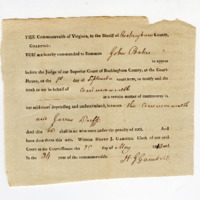 THE Commonwealth of Virginia, to the Sheriff of Rockingham County,
GREETING:
YOU are hereby commanded to Summon John Baker
to appear
before the Judge of our Superior Court of Rockingham County, at the Court-
House, at the 1st day of September court next, to testify and the
truth to say on behalf of Commonwealth
in a certain matter of controversy in
our said court depending and undetermined, between the Commonwealth
and James Duff
And this shall in no wise omit under the penalty of £100. And
have then there this writ. Witness HENRY J. GAMBILL Clerk of our said
Court at the Courthouse the day of May
In the 36 year of the commonwealth
H J Gambill